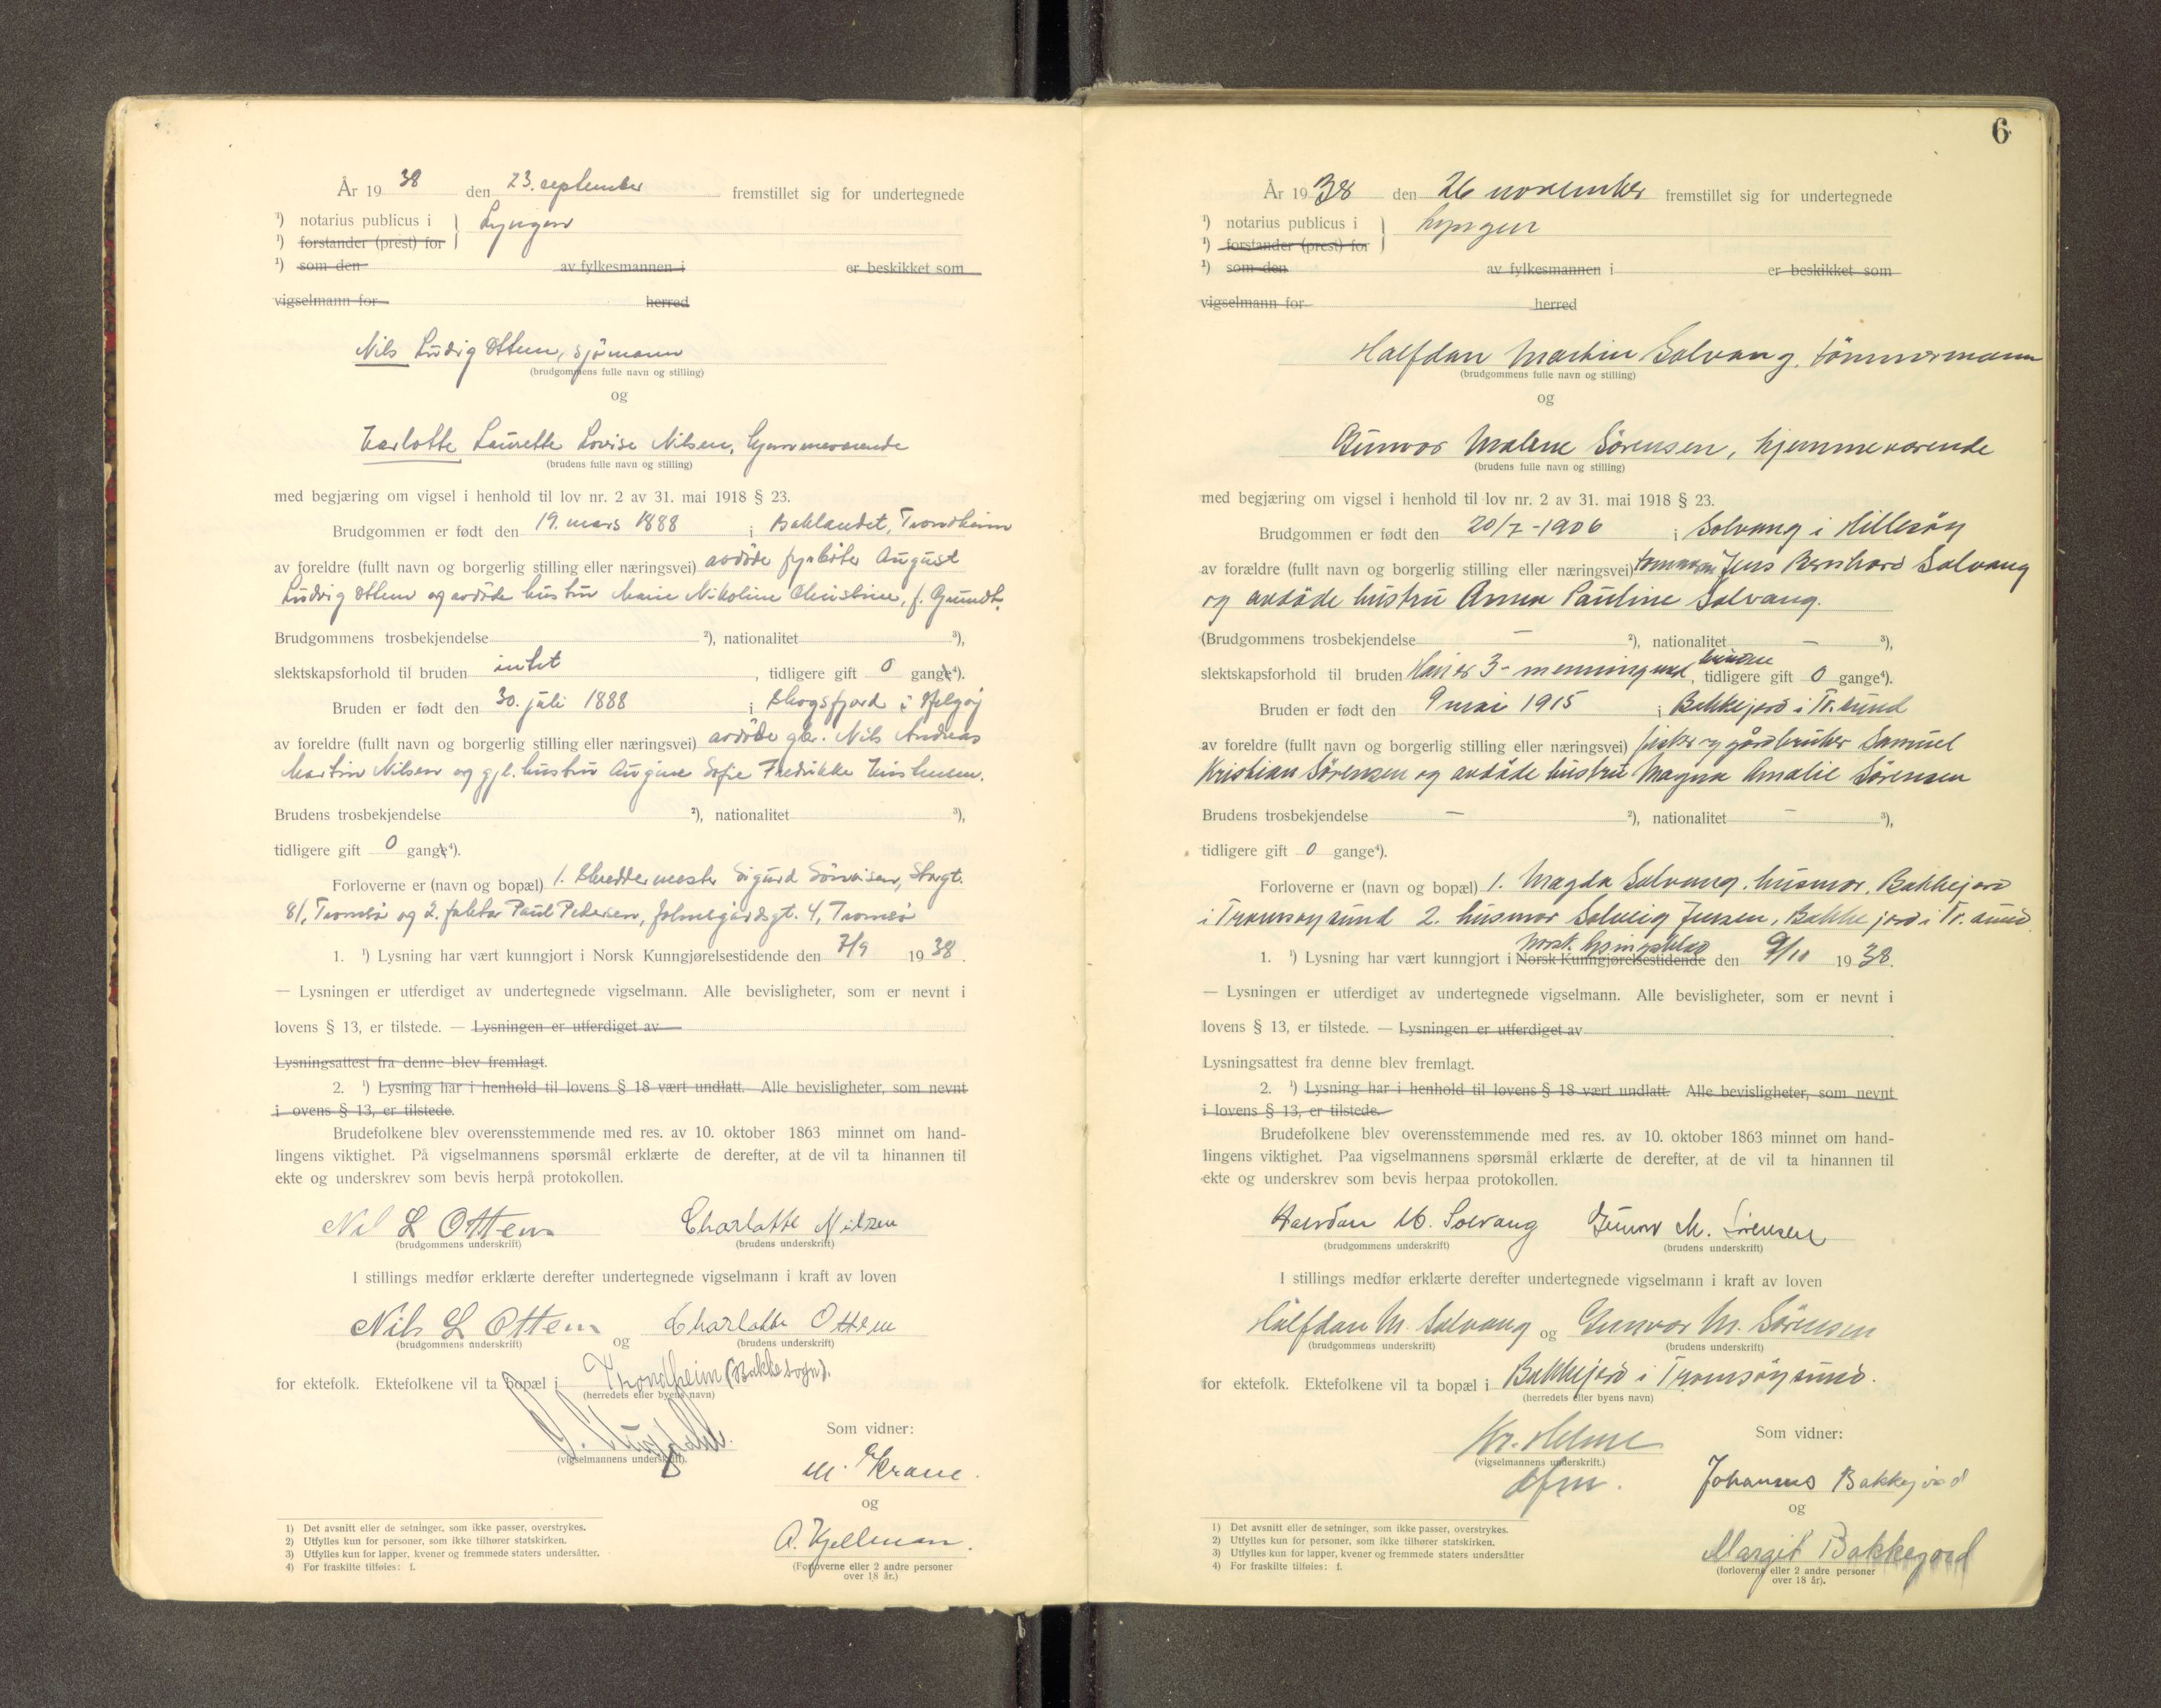 År 1938 den 23. september fremstillet sig for undertegnede
¹) notarius publicus i } Lyngen
¹) forstander (prest) for
¹) som den av fylkesmannen i er beskikket som
vigselmann for herred
Nils Ludvig Ottem, sjömann
(brudgommens fulle navn og stilling)
og
Karlotte Laurette Lovise Nilsen, hjemmeværende
(brudens fulle navn og stilling)
med begjæring om vigsel i henhold til lov nr. 2 av 31. mai 1918 § 23.
Brudgommen er født den 19. mars 1888 i Baklandet, Trondheim
av foreldre (fullt navn og borgerlig stilling eller næringsvei) avdöde fyrböter August
Ludvig Ottem og avdöde hustru Marie Nikoline Christine, f. Grundt.
Brudgommens trosbekjendelse ²), nationalitet ³),
slektskapsforhold til bruden intet, tidligere gift 0 gange⁴).
Bruden er født den 30. juli 1888 i Skogsfjord i Helgöj
av foreldre (fullt navn og borgerlig stilling eller næringsvei) avdöde gbr. Nils Andreas
Martin Nilsen og gjl. hustru Augine Sofie Fredrikke
Brudens trosbekjendelse ²), nationalitet ³),
tidligere gift 0 gange⁴).
Forloverne er (navn og bopæl) 1. Skreddermester Sigurd Storgt.
81, Tromsö og 2. faktor Paul Petersen, 4, Tromsö
1. ¹) Lysning har vært kunngjort i Norsk Kunngjørelsestidende den 7/9 1938.
— Lysningen er utferdiget av undertegnede vigselmann. Alle bevisligheter, som er nevnt i
lovens § 13, er tilstede. — Lysningen er utferdiget av
Lysningsattest fra denne blev fremlagt.
2. ¹) Lysning har i henhold til lovens § 18 vært undlatt. Alle bevisligheter, som nevnt
i ovens § 13, er tilstede.
Brudefolkene blev overensstemmende med res. av 10. oktober 1863 minnet om hand-
lingens viktighet. På vigselmannens spørsmål erklærte de derefter, at de vil ta hinannen til
ekte og underskrev som bevis herpå protokollen.
Nil L Ottem Charlotte Nilsen
(brudgommens underskrift) (brudens underskrift)
I stillings medfør erklærte derefter undertegnede vigselmann i kraft av loven
Nils L Ottem og Charlotte Ottem
(brudgommens underskrift) (brudens underskrift)
for ektefolk. Ektefolkene vil ta bopæl i Trondheim (Bakke sogn).
(herredets eller byens navn)
(vigselmannens underskrift).
Som vidner:
M. Krane.
og
A. Kjellman.
(Forloverne eller 2 andre personer
over 18 år.)
1) Det avsnitt eller de setninger, som ikke passer, overstrykes.
2) Utfylles kun for personer, som ikke tilhører statskirken.
3) Utfylles kun for lapper, kvener og fremmede staters undersåtter.
4) For fraskilte tilføies: f.
6
År 1938 den 26 november fremstillet sig for undertegnede
¹) notarius publicus i } Lyngen
¹) forstander (prest) for
¹) som den av fylkesmannen i er beskikket som
vigselmann for herred
Halfdan Martin Solvang, tömmermann
(brudgommens fulle navn og stilling)
og
Gunvor Malene Sörensen, hjemmeværende
(brudens fulle navn og stilling)
med begjæring om vigsel i henhold til lov nr. 2 av 31. mai 1918 § 23.
Brudgommen er født den 20/7-1906 i Solvang i Hillesöy
av forældre (fullt navn og borgerlig stilling eller næringsvei) Jens Bernhard Solvang
og avdöde hustru Anna Pauline Solvang.
(Brudgommens trosbekjendelse — ²), nationalitet — ³),
slektskapsforhold til bruden Han er 3-menning med bruden, tidligere gift 0 gange⁴).
Bruden er født den 9 mai 1915 i Bakkejord i Tr.sund
av foreldre (fullt navn og borgerlig stilling eller næringsvei) fisker og gårdbruker Samuel
Kristian Sörensen og avdöde hustru Magna Amalie Sörensen
Brudens trosbekjendelse — ²), nationalitet — ³),
tidligere gift 0 gange⁴).
Forloverne er (navn og bopæl) 1. Magda Solvang, husmor, Bakkejord
i Tromsöysund 2. husmor Solveig Jensen, Bakkejord i Tr.sund
1. ¹) Lysning har vært kunngjort i Norsk Kunngjørelsestidende Norsk lysingsblad den 9/11 1938.
— Lysningen er utferdiget av undertegnede vigselmann. Alle bevisligheter, som er nevnt i
lovens § 13, er tilstede. — Lysningen er utferdiget av
Lysningsattest fra denne blev fremlagt.
2. ¹) Lysning har i henhold til lovens § 18 vært undlatt. Alle bevisligheter, som nevnt
i lovens § 13, er tilstede.
Brudefolkene blev overensstemmende med res. av 10. oktober 1863 minnet om hand-
lingens viktighet. Paa vigselmannens spørsmål erklærte de derefter, at de vil ta hinannen til
ekte og underskrev som bevis herpaa protokollen.
Halvdan M. Solvang Gunvor M. Sörensen
(brudgommens underskrift) (brudens underskrift)
I stillings medfør erklærte derefter undertegnede vigselmann i kraft av loven
Halfdan M. Solvang og Gunvor M. Sörensen
(brudgommens underskrift) (brudens underskrift)
for ektefolk. Ektefolkene vil ta bopæl i Bakkejord i Tromsöysund.
(herredets eller byens navn)
Kr. Helme
(vigselmannens underskrift.)
Som vidner:
Johannes Bakkejord
og
Margit Bakkejord
(forloverne eller 2 andre personer
over 18 år).
1) Det avsnitt eller de setninger, som ikke passer, overstrykes.
2) Utfylles kun for personer, som ikke tilhører statskirken.
3) Utfylles kun for lapper, kvener og fremmede staters undersåtter
4) For fraskilte tilføies: f.